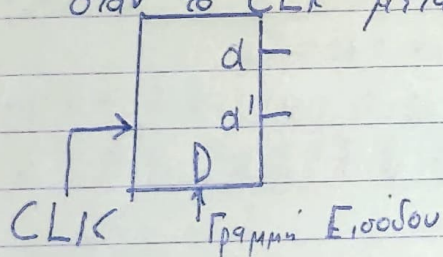 όταν το CLK
d
d'
D
CLK
Γραμμή Εισόδου